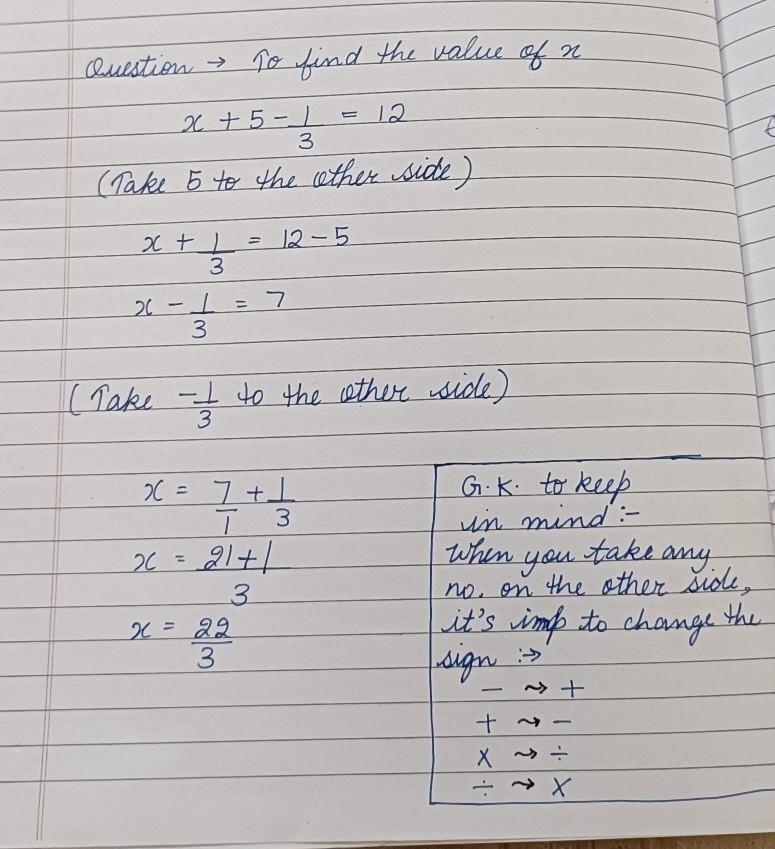 Question → To find the value of x
x + 5 - 1/3 = 12
(Take 5 to the other side)
x + 1/3 = 12 - 5
x - 1/3 = 7
(Take -1/3 to the other side)
x = 7/1 + 1/3
x = 21+1/3
x = 22/3
G.K. to keep
in mind :-
When you take any
no. on the other side,
it's imp to change the
sign :→
- ⇝ +
+ ⇝ -
x ⇝ ÷
÷ ⇝ x